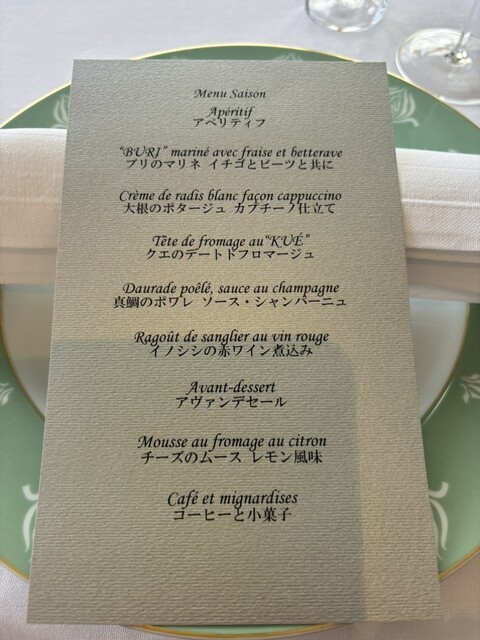 Menu Saison
Apéritif
アペリティフ
"BURI" mariné avec fraise et betterave
ブリのマリネ イチゴとビーツと共に
Crème de radis blanc façon cappuccino
大根のポタージュ カプチーノ仕立て
Tête de fromage au "KUÉ"
クエのテートドフロマージュ
Daurade poêlé, sauce au champagne
真鯛のポワレ ソース・シャンパーニュ
Ragoût de sanglier au vin rouge
イノシシの赤ワイン煮込み
Avant-dessert
アヴァンデセール
Mousse au fromage au citron
チーズのムース レモン風味
Café et mignardises
コーヒーと小菓子